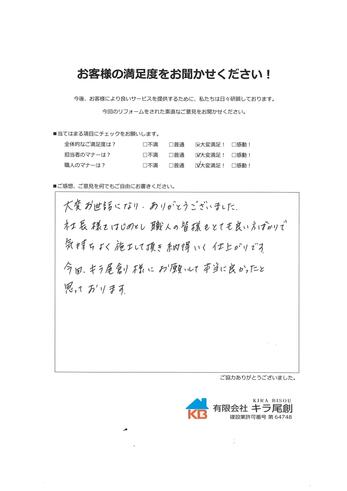 お客様の満足度をお聞かせください！
今後、お客様により良いサービスを提供するために、私たちは日々研鑽しております。
今回のリフォームをされた素直なご意見をお聞かせください。
■当てはまる項目にチェックをお願いします。
全体的なご満足度は？ □不満 □普通 ☑大変満足！ □感動！
担当者のマナーは？ □不満 □普通 ☑大変満足！ □感動！
職人のマナーは？ □不満 □普通 ☑大変満足！ □感動！
■ご感想、ご意見を何でもご自由にお書きください。
大変お世話になり、ありがとうございました。
社長様をはじめとし 職人の皆様もとても良い方ばかりで
気持ちよく施工して頂き納得いく仕上がりです
今回、キラ尾創様にお願いして本当に良かったと
思っております。
ご協力ありがとうございました。
KIRA BISOU
KB 有限会社 キラ尾創
建設業許可番号 第 64748